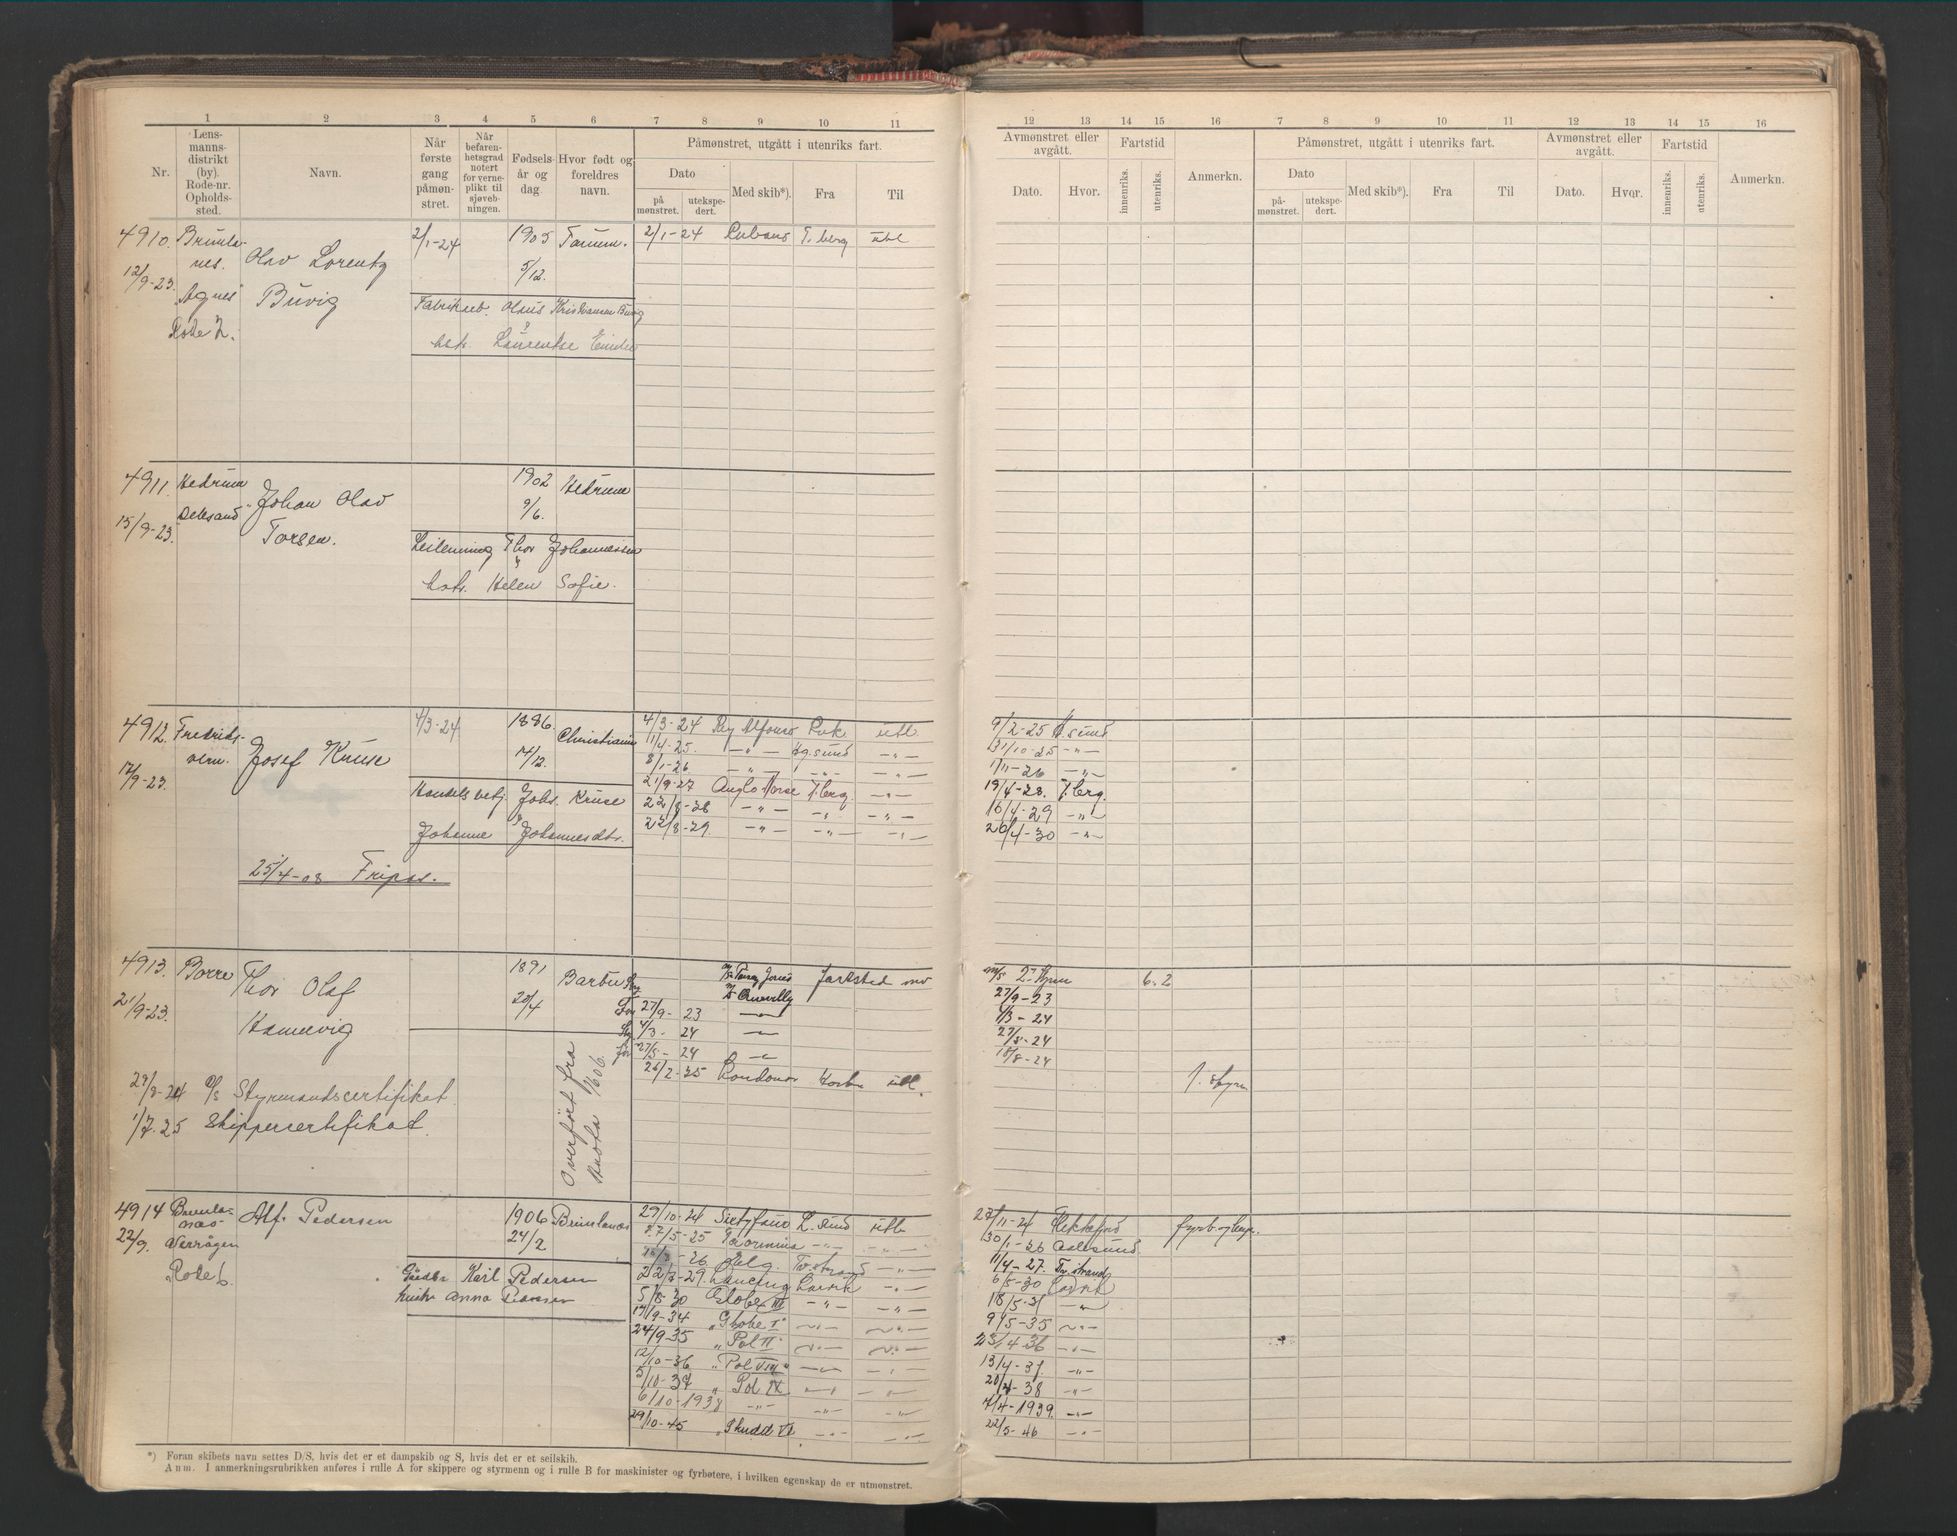 1 2 3 4 5 6 7 8 9 10 11
Nr.
Lens-
manns-
distrikt
(by).
Rode-nr.
Opholds-
sted.
Navn.
Når
første
gang
påmøn-
stret.
Når
befaren-
hetsgrad
notert
for verne-
plikt til
sjøveb-
ningen.
Fødsels-
år og
dag.
Hvor født og
foreldres
navn.
Påmønstret, utgått i utenriks fart.
Dato
på
mønstret.
utekspe-
dert.
Med skib*).
Fra
Til
12 13 14 15 16 7 8 9 10 11 12 13 14 15 16
Avmønstret eller
avgått.
Dato. Hvor.
Fartstid
innenriks. utenriks.
Anmerkn.
Påmønstret, utgått i utenriks fart.
Dato
på-
mønstret.
utekspe-
dert.
Med skib*). Fra Til
Avmønstret eller
avgått.
Dato. Hvor.
Fartstid
innenriks. utenriks.
Anmerkn.
4910. Brunla-
nes.
12/9-23. "Agnes"
Rode 2.
Olav Lorentz
Buvig
2/1-24 1905 Tanum.
5/12.
Olaus Kristiansen Buvig
2/1-24 Cubano T.berg utl
4911. Hedrum
15/9-23.
Johan Olav
Torsen.
1902 Hedrum
9/6.
Thor Johannessen
Helen Sofie.
4912. Fredriks-
vern.
17/9-23.
Josef Kruse
4/3-24 1886. Christiania
14/12.
Handelsbetj. Johs. Kruse
Johanne Johannesdtr.
25/4-08 Fripas.
4/3-24 Rey Alfonso utl.
11/4-25. -"- Hg.sund -"-
8/1-26 -"- -"- -"-
21/9-27 Anglo Norse T.berg. -"-
22/8-28 -"- -"- -"-
22/8-29 -"- -"- -"-
9/2-25 H.sund
31/10-25 -"-
1/11-26 -"-
19/4-28. T.berg.
16/4-29 -"-
20/4-30 -"-
4913. Borre
21/9-23.
Thor Olaf
Hannevig
1891 Barbu
20/4
29/8-24 Styrmandscertifikat.
1/7-25 Skippercertifikat.
Overført fra
1606.
27/9-23
4/3-24
27/5-24
26/2-25 Londonor utl.
6.2
27/9-23
4/3-24
27/5-24
18/8-24
1. styrm
4914 Brunla-
nes-
22/9. Nevrågen
"Rode 6.
Alf. Pedersen
1906 Brunlanes
24/2
Karl Pedersen
hustr Anna
29/10-24 Sietyfauo L.sund utl.
27/5-25 Taormina -"- -"-
26 Helg. Tv.strand -"-
22/7-29. Lancing Larvik -"-
5/8-30 Globe III -"- -"-
19/9-34 "Globe I" -"- -"-
24/9-35 "Pol II" -"- -"-
12/10-36 "Pol VIII" -"- -"-
5/10-37 "Pol IX -"- -"-
6/10-1938 -"- -"- -"-
29/10-45 "Skudd VI -"- -"-
27/11-24 Flekkefjord fyrb. og lemp.
30/1-26 Aalesund
11/4-27. Tv.strand
6/5-30 Larvik
18/5-31 -"-
9/5-35 -"-
23/4-36 -"-
13/4-37. -"-
20/4-38 -"-
4/4-1939. -"-
22/5-46 -"-
*) Foran skibets navn settes D/S, hvis det er et dampskib og S, hvis det er et seilskib.
Anm. I anmerkningsrubrikken anføres i rulle A for skippere og styrmenn og i rulle B for maskinister og fyrbøtere, i hvilken egenskap de er utmønstret.